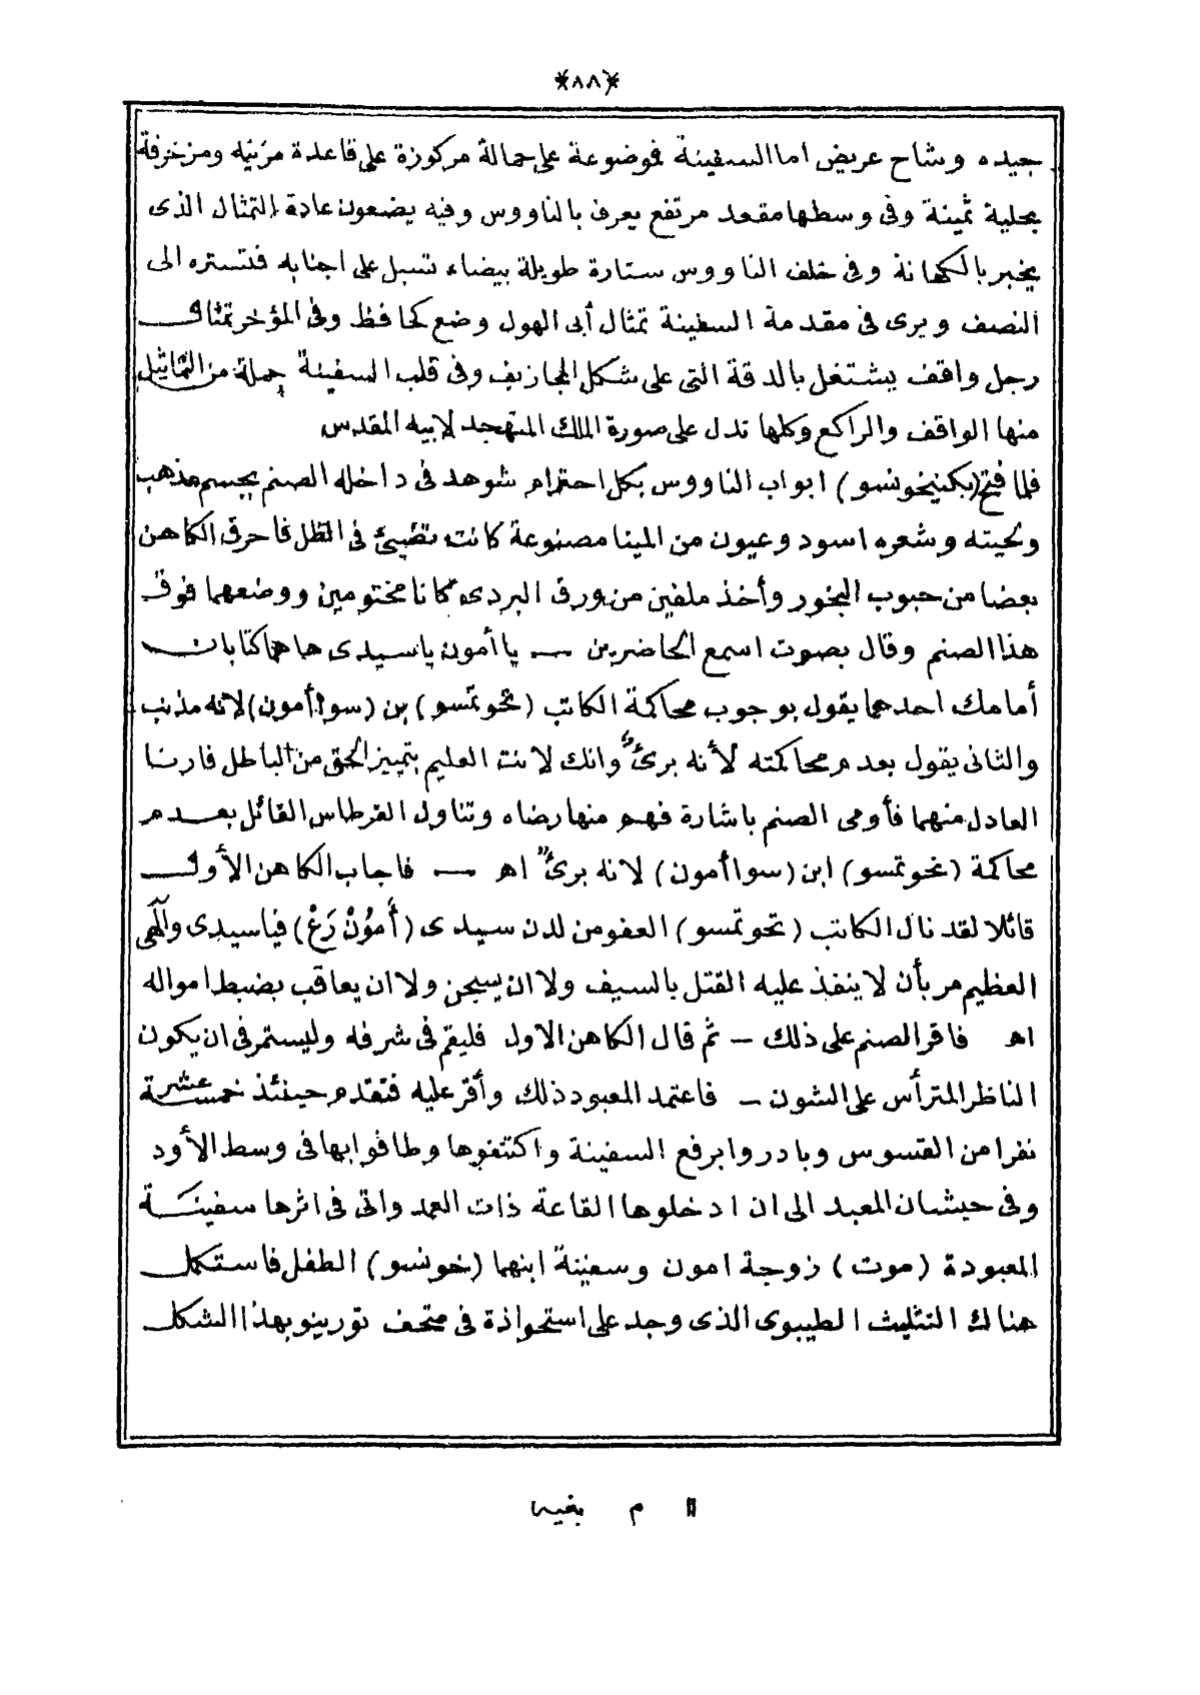 *(٨٨)*
جيده وشاح عريض اما السفينة فموضوعة على حمالة مركوزة على قاعدة مزينه ومزخرفة
بحلية ثمينة وفى وسطها مقعد مرتفع يعرف بالناووس وفيه يضعون عادة التمثال الذى
يخبر بالكهانة وفى خلف الناووس ستارة طويلة بيضاء تسبل على اجنابه فتستره الى
النصف ويرى فى مقدمة السفينة تمثال أبى الهول وضع كحافظ وفى المؤخر تمثال
رجل واقف يشتغل بالدقة التى على شكل المجازيف وفى قلب السفينة جملة من التماثيل
منها الواقف والراكع وكلها تدل على صورة الملك المتهجد لابيه المقدس
فلما فتح (بكنيخونسو) ابواب الناووس بكل احترام شوهد فى داخله الصنم بجسم مذهب
ولحيته وشعره اسود وعيون من المينا مصنوعة كانت تضيئ فى الظل فاحرق الكاهن
بعضا من حبوب البخور وأخذ ملفين من ورق البردى كانا مختومين ووضعهما فوق
هذا الصنم وقال بصوت اسمع الحاضرين — يا أمون يا سيدى ها هما كتابان
أمامك احدهما يقول بوجوب محاكمة الكاتب (تحوتمسو) بن (سوا أمون) لانه مذنب
والثانى يقول بعدم محاكمته لأنه برئ وانك لانت العليم بتمييز الحق من الباطل فارنا
العادل منهما فأومى الصنم باشارة فهم منها رضاه وتناول القرطاس القائل بعدم
محاكمة (تحوتمسو) ابن (سوا أمون) لانه برئ اه — فاجاب الكاهن الأول
قائلا لقد نال الكاتب (تحوتمسو) العفو من لدن سيدى (أَمُونْ رَعْ) فيا سيدى وآلهى
العظيم مر بأن لا ينفذ عليه القتل بالسيف ولا ان يسجن ولا ان يعاقب بضبط امواله
اه فاقر الصنم على ذلك — ثم قال الكاهن الاول فليقم فى شرفه وليستمر فى ان يكون
الناظر المترأس على الشون — فاعتمد المعبود ذلك وأقر عليه فتقدم حينئذ خمسة عشر
نفرا من القسوس وبادروا برفع السفينة واكتنفوها وطافوا بها فى وسط الأود
وفى حيشان المعبد الى ان ادخلوها القاعة ذات العمد واتى فى اثرها سفينة
المعبودة (موت) زوجة امون وسفينة ابنهما (خونسو) الطفل فاستكمل
هنالك التثليث الطيبوى الذى وجد على استحواذة فى متحف تورينو بهذا الشكل
١١ م بغيه